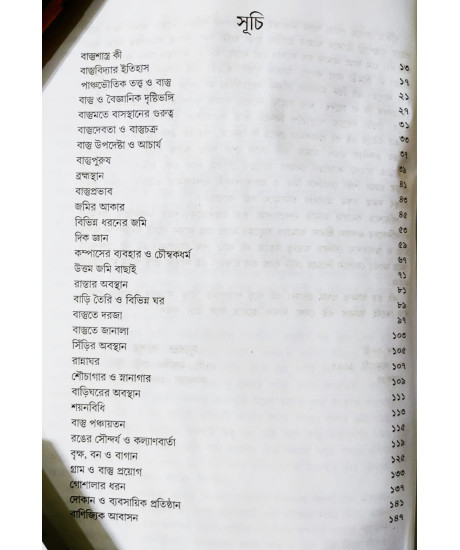 সূচি
বাস্তুশাস্ত্র কী ১৩
বাস্তুবিদ্যার ইতিহাস ১৭
পাঞ্চভৌতিক তত্ত্ব ও বাস্তু ২১
বাস্তু ও বৈজ্ঞানিক দৃষ্টিভঙ্গি ২৭
বাস্তুমতে বাসস্থানের গুরুত্ব ৩১
বাস্তুদেবতা ও বাস্তুচক্র ৩৩
বাস্তু উপদেষ্টা ও আচার্য ৩৭
বাস্তুপুরুষ ৩৯
ব্রহ্মস্থান ৪১
বাস্তুপ্রভাব ৪৩
জমির আকার ৪৫
বিভিন্ন ধরনের জমি ৫৩
দিক জ্ঞান ৫৯
কম্পাসের ব্যবহার ও চৌম্বকধর্ম ৬৭
উত্তম জমি বাছাই ৭১
রাস্তার অবস্থান ৮১
বাড়ি তৈরি ও বিভিন্ন ঘর ৮৯
বাস্তুতে দরজা ৯৭
বাস্তুতে জানালা ১০৩
সিঁড়ির অবস্থান ১০৫
রান্নাঘর ১০৭
শৌচাগার ও স্নানাগার ১০৯
বাড়িঘরের অবস্থান ১১১
শয়নবিধি ১১৩
বাস্তু পঞ্চায়তন ১১৫
রঙের সৌন্দর্য ও কল্যাণবার্তা ১১৯
বৃক্ষ, বন ও বাগান ১২৫
গ্রাম ও বাস্তু প্রয়োগ ১৩৩
গোশালার ধরন ১৩৭
দোকান ও ব্যবসায়িক প্রতিষ্ঠান ১৪১
বাণিজ্যিক আবাসন ১৪৭